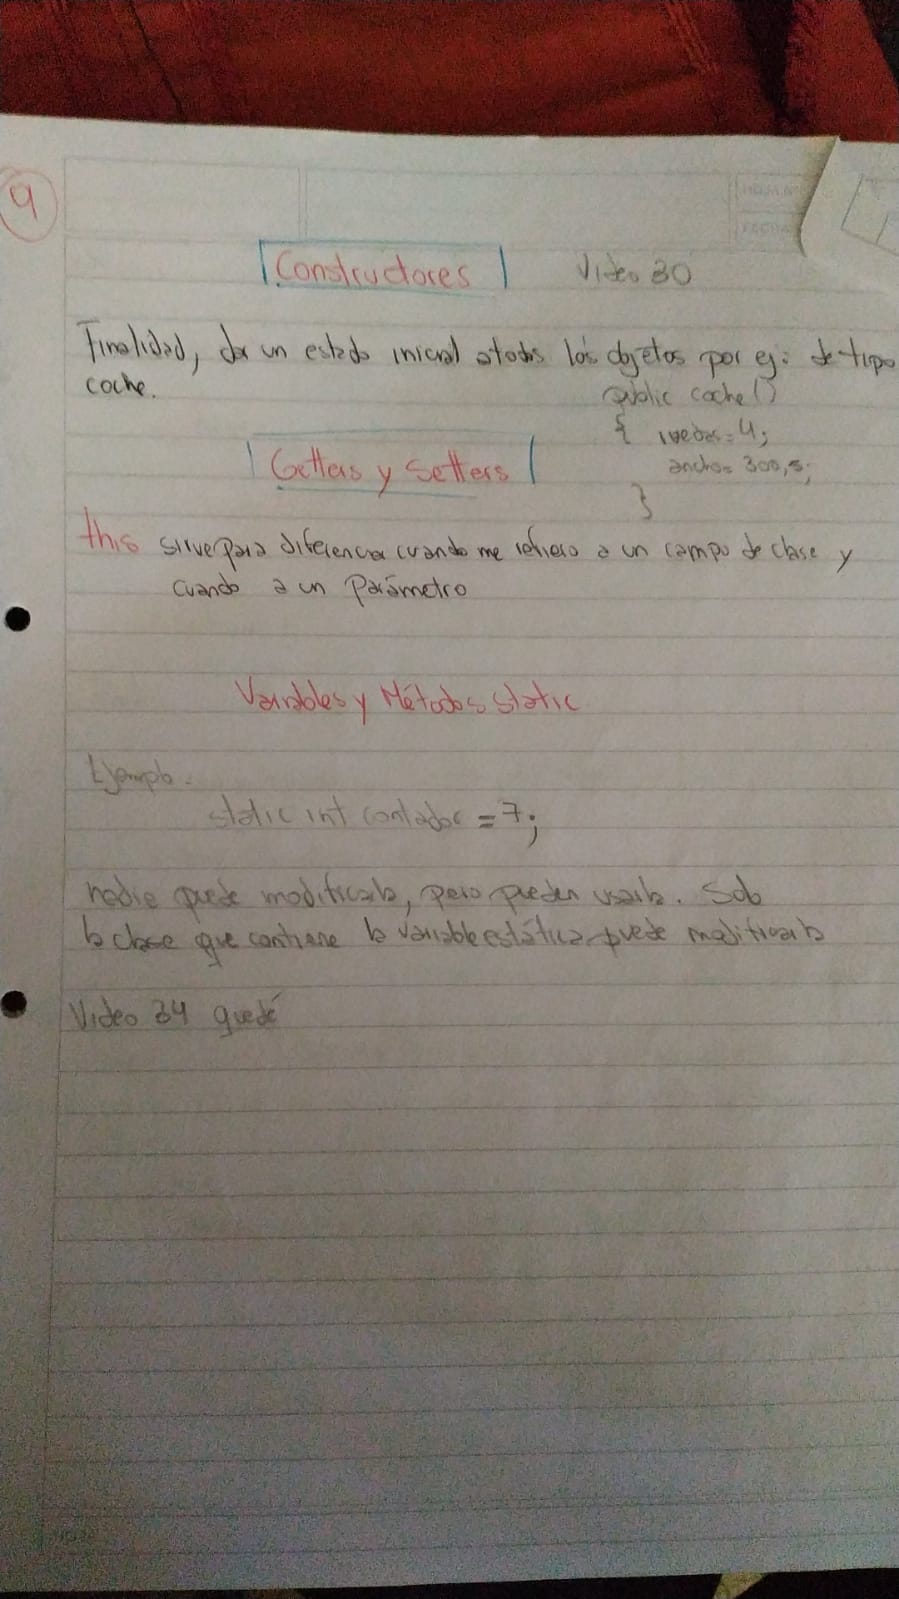 9
HOJA Nº
FECHA
Constructores Video 30
Finalidad, dar un estado inicial a todos los objetos por ej: de tipo
coche.
public coche()
{ ruedas=4;
ancho= 300,5;
}
Getters y Setters
this sirve para diferenciar cuando me refiero a un campo de clase y
cuando a un Parámetro
Variables y Métodos static
Ejemplo.
static int contador = 7;
nadie puede modificarla, pero pueden usarla. Solo
la clase que contiene la variable estática puede modificarla
Video 34 quedé